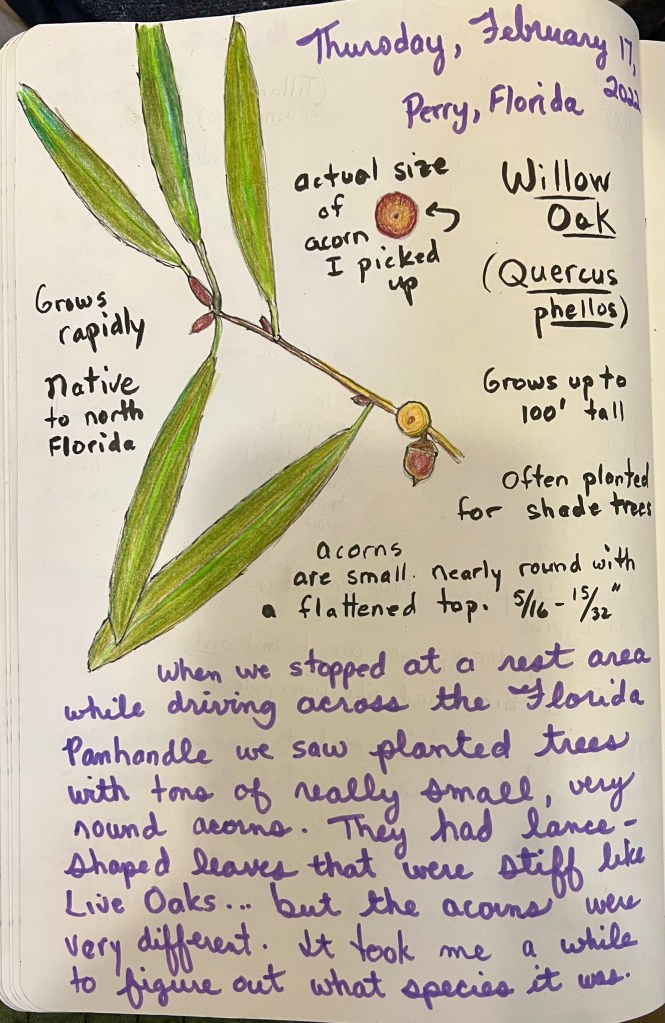 Thursday, February 17,
2022
Perry, Florida
actual size
of
acorn
I picked
up
Willow
Oak
(Quercus
phellos)
Grows
rapidly
native
to north
Florida
Grows up to
100' tall
Often planted
for shade trees
acorns
are small. nearly round with
a flattened top. 5/16 - 15/32"
When we stopped at a rest area
while driving across the Florida
Panhandle we saw planted trees
with tons of really small, very
round acorns. They had lance-
shaped leaves that were stiff like
Live Oaks... but the acorns were
very different. It took me a while
to figure out what species it was.